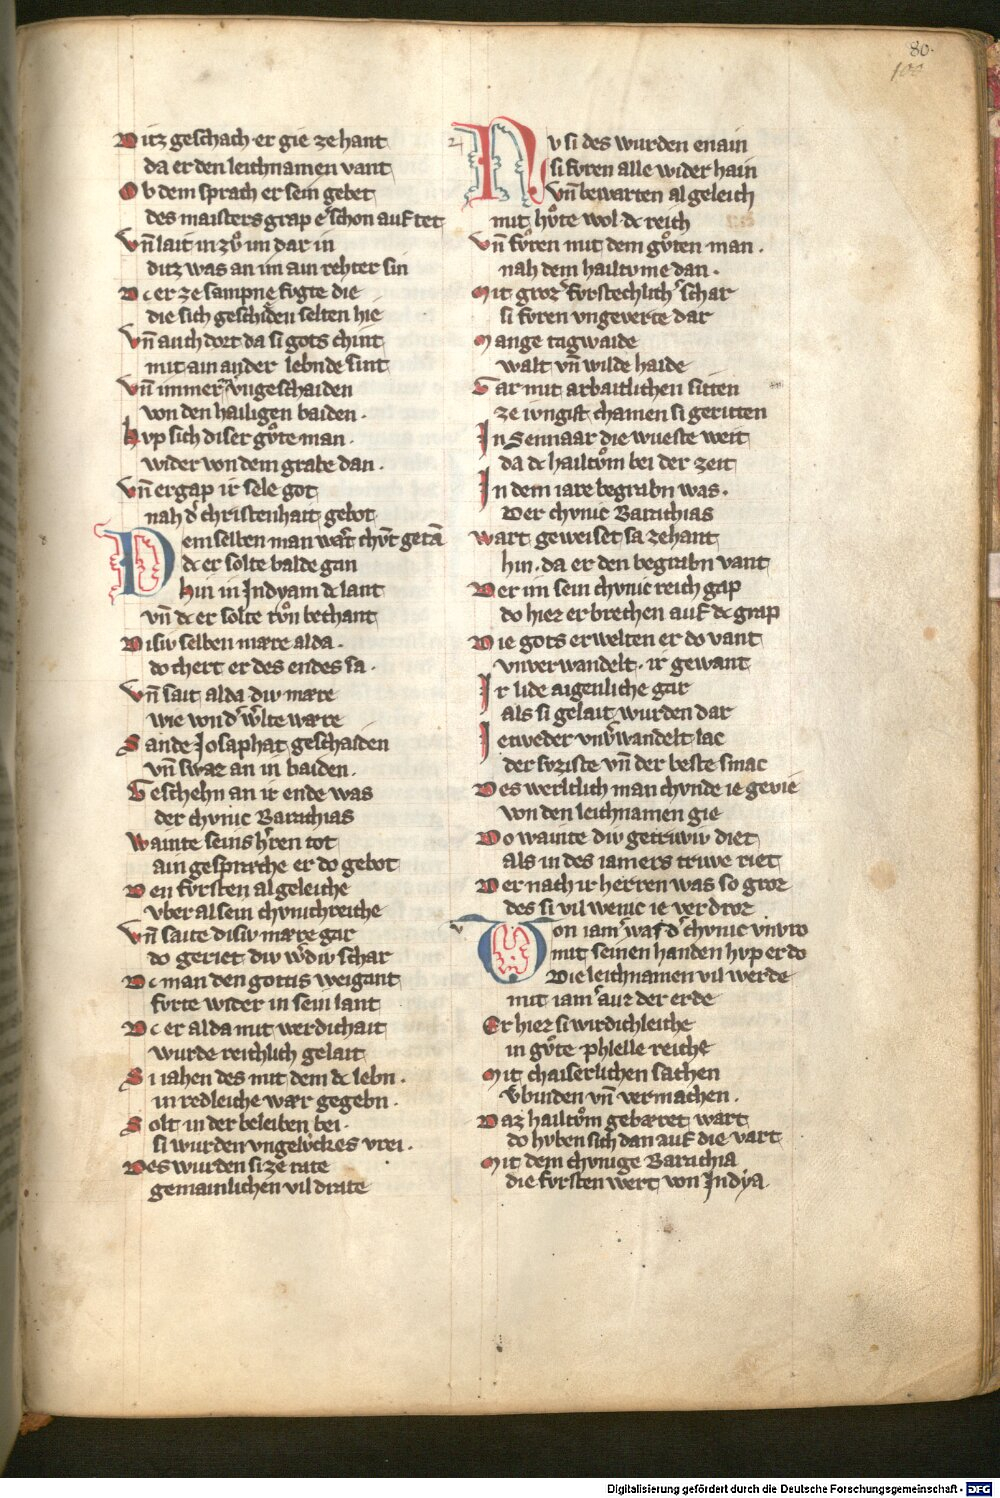 80.
100
Ditz geschach· er gie ze hant
da er den leichnamen vant
Ob dem sprach er sein gebet
des maisters grap er schon auf tet
Vn̄ lait in zů im dar in
ditz was an im ain rehter sin
Dc er ze sampne fůgte die
die sich geschiden selten hie
Vn̄ auch dort da si gots chint
mit ain ander lebnde sint
Vn̄ immer vngeschaiden
von den hailigen baiden·
Hvp sich diser gůte man·
wider von dem grabe dan·
Vn̄ ergap ir sele got
nah d' christenhait gebot
Dem selben man wart chvnt getā
dc er solte balde gan
hin in Jndyam dc lant
vn̄ dc er solte tvn bechant
Disiv selben mære alda·
do chert er des endes sa·
Vn̄ sait alda div mære
wie von d' werlte wære
Sande Josaphat geschaiden
vn̄ swaz an in baiden·
Geschehn an ir ende was
der chvnic Barachias
Wainte seins h'ren tot
ain gespræche er do gebot
Den fvrsten al geleiche
vber al sein chvnichreiche
Vn̄ saite disiv mære gar
do geriet div w'div schar
Dc man den gottis weigant
fvrte wider in sein lant
Dc er alda mit werdichait
wurde reichlich gelait
Si iahen des mit dem dc lebn·
in redleiche wær gegebn·
Solt in der beleiben bei·
si wurden vngelvckes vrei·
Des wurden si ze rate
gemainlichen vil drate
Nv si des wurden enain
si fvren alle wider hain
Vn̄ bewarten al geleich
mit hůte wol dc reich
Vn̄ fůren mit dem gůten man·
nah dem hailtvme dan·
Mit groz' fvrstechlich' schar
si fvren vngeverte dar
Mange tagwaide
walt vn̄ wilde haide
Gar mit arbaitlichen sitten
ze ivngist chamen si geritten
Jn Sennaar die wueste weit
da dc hailtvm bei der zeit
Jn dem iare begrabn was·
Der chvnic Barachias
Wart geweiset sa zehant
hin· da er den begrabn vant
Der im sein chvnic reich gap
do hiez er brechen auf dc grap
Die gots erwelten er do vant
vnverwandelt· ir gewant
Jr lide aigenliche gar
als si gelait wurden dar
Jetweder vnv'wandelt lac
der svziste vn̄ der beste smac
Des werltlich man chvnde ie gevie
von den leichnamen gie
Do wainte div getriwiv diet
als in des iamers triwe riet
Der nach ir herren was so groz
des si vil wenic ie verdroz
Von iam' was d' chvnic vnvro
mit seinen handen hvp er do
Die leichnamen vil werde
mit iam' auz der erde
Er hiez si wirdichleiche
in gůte phlelle reiche
Mit chaiserlichen sachen
v'binden vn̄ vermachen·
Daz hailtvm gebæret wart
do hvben sich dan auf die vart
Mit dem chvnige Barachia
die fvrsten wert von Jndya·
Digitalisierung gefördert durch die Deutsche Forschungsgemeinschaft - DFG